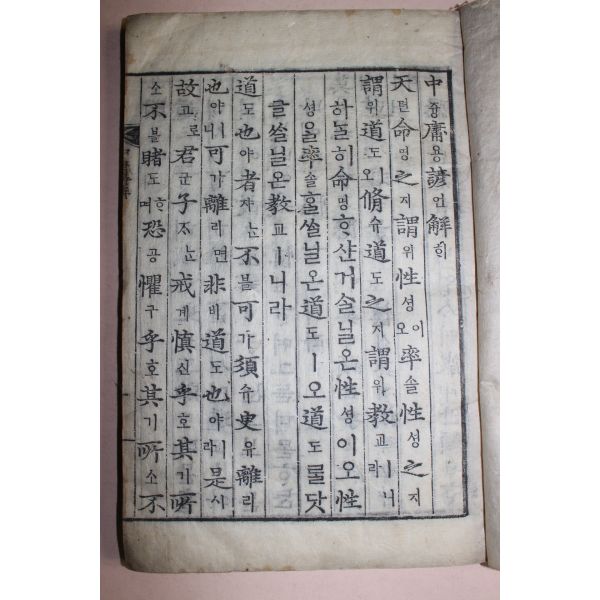 中즁庸용諺언解ᄒᆡ
天텬命명之지謂위性셩이오率솔性셩之지
謂위道도ㅣ오脩슈道도之지謂위敎교ㅣ니라
하ᄂᆞᆯ히命명ᄒᆞ샨거슬닐온性셩이오性
셩을率솔홀ᄡᅳᆯ닐온道도ㅣ오道도를닷
글ᄡᅳᆯ닐온敎교ㅣ니라
道도也야者쟈ᄂᆞᆫ不블可가須슈臾유離리
也야ㅣ니可가離리면非비道도也야ㅣ라是시
故고로君군子ᄌᆞᄂᆞᆫ戒계愼신乎호其기所
소不블睹도ᄒᆞ며恐공懼구乎호其기所소不